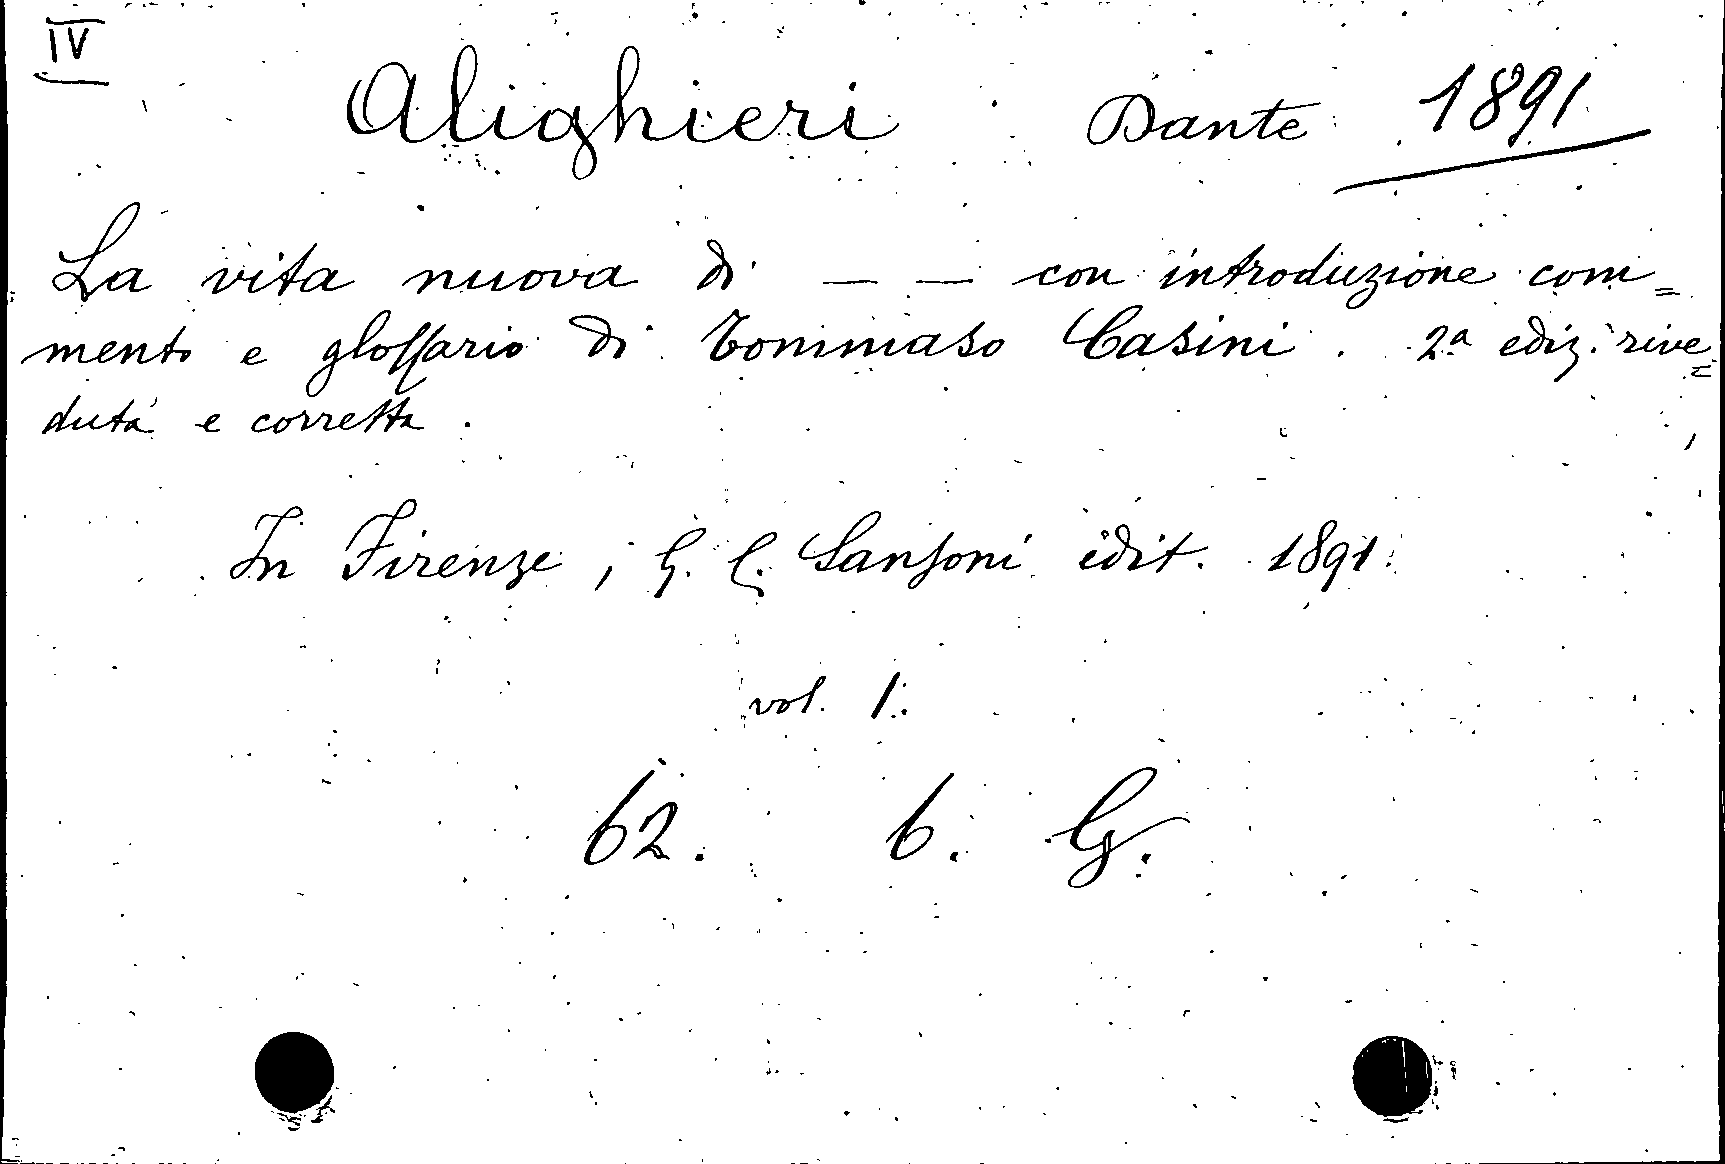 IV
Alighieri Dante 1891
La vita nuova di — — con introduzione com=
mento e glossario di Tommaso Casini. 2a ediz. rive=
duta e corretta.
In Firenze, G. C. Sansoni edit. 1891.
vol. 1.
62. 6. G.